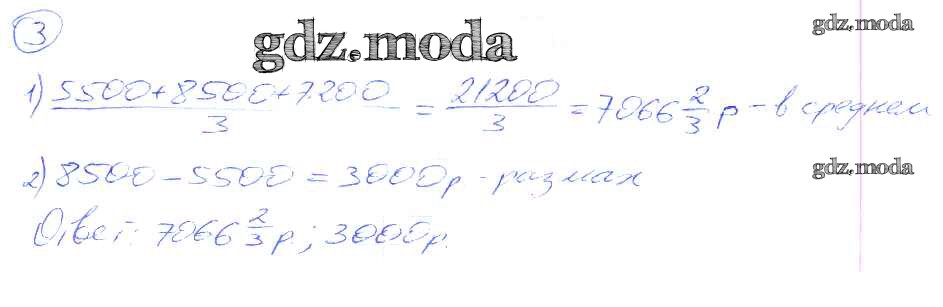 3
gdz.moda
gdz.moda
1) (5500+8500+7200)/3 = 21200/3 = 7066 2/3 р - в среднем
2) 8500 - 5500 = 3000р. - размах
gdz.moda
Ответ: 7066 2/3 р.; 3000р.